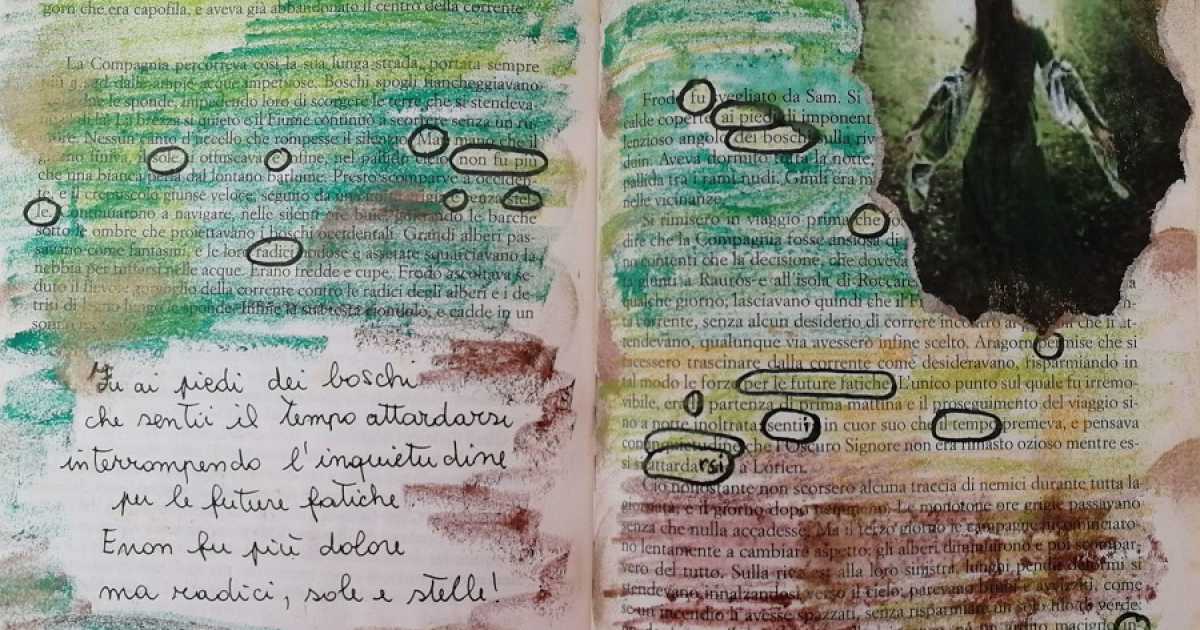 gorn che era capofila, e aveva già abbandonato il centro della corrente
La Compagnia percorreva così la sua lunga strada, portata sempre
dalle ampie acque impetuose. Boschi spogli fiancheggiavano
le sponde, impedendo loro di scorgere le terre che si stendeva-
La brezza si quietò e il Fiume continuò a scorrere senza un ru-
Nessun canto d'uccello che rompesse il silenzio. Ma che il
giorno finiva, il sole offuscava e infine, nel pallido cielo non fu più
che una bianca perla dal lontano barlume. Presto scomparve a occiden-
te, e il crepuscolo giunse veloce, seguito da una senza stel-
le. Continuarono a navigare, nelle silenti ore buie, le barche
sotto le ombre che proiettavano i boschi occidentali. Grandi alberi pas-
savano come fantasmi, e le loro radici nodose e assetate squarciavano la
nebbia per tuffarsi nelle acque. Erano fredde e cupe. Frodo ascoltava se-
duto il fievole gorgoglio della corrente contro le radici degli alberi e i de-
triti di legno lungo le sponde. Infine la sua testa ciondolò, e cadde in un
Fu ai piedi dei boschi
che sentii il tempo attardarsi
interrompendo l'inquietudine
per le future fatiche
E non fu più dolore
ma radici, sole e stelle!
Frodo fu svegliato da Sam. Si
calde coperte ai piedi di imponent
lenzioso angolo dei boschi sulla riv
duin. Aveva dormito tutta la notte,
pallida tra i rami nudi. Gimli era
nelle vicinanze.
Si rimisero in viaggio prima che
dire che la Compagnia fosse ansiosa di
contenti che la decisione, che doveva
giunti a Rauros e all'isola di Roccare
qualche giorno; lasciavano quindi che il
ta corrente, senza alcun desiderio di correre incontro ai che li at-
tendevano, qualunque via avessero infine scelto. Aragorn permise che si
lacessero trascinare dalla corrente come desideravano, risparmiando in
tal modo le forze per le future fatiche. L'unico punto sul quale fu irremo-
vibile, era partenza di prima mattina e il proseguimento del viaggio si-
no a notte inoltrata; sentii in cuor suo che il tempo premeva, e pensava
con inquietudine che l'Oscuro Signore non era rimasto ozioso mentre es-
si attardarsi a Lórien.
Ciò nonostante non scorsero alcuna traccia di nemici durante tutta la
giornata, e il giorno dopo nemmeno. Le monotone ore grigie passavano
senza che nulla accadesse. Ma il terzo giorno le campagne incominciaro-
no lentamente a cambiare aspetto: gli alberi diradarono e poi scompar-
vero del tutto. Sulla riva alla loro sinistra, lunghi pendii deformi si
stendevano innalzandosi verso il cielo; parevano bruni e avvizziti, come
se un incendio li avesse spazzati, senza risparmiare un solo filo di verde: